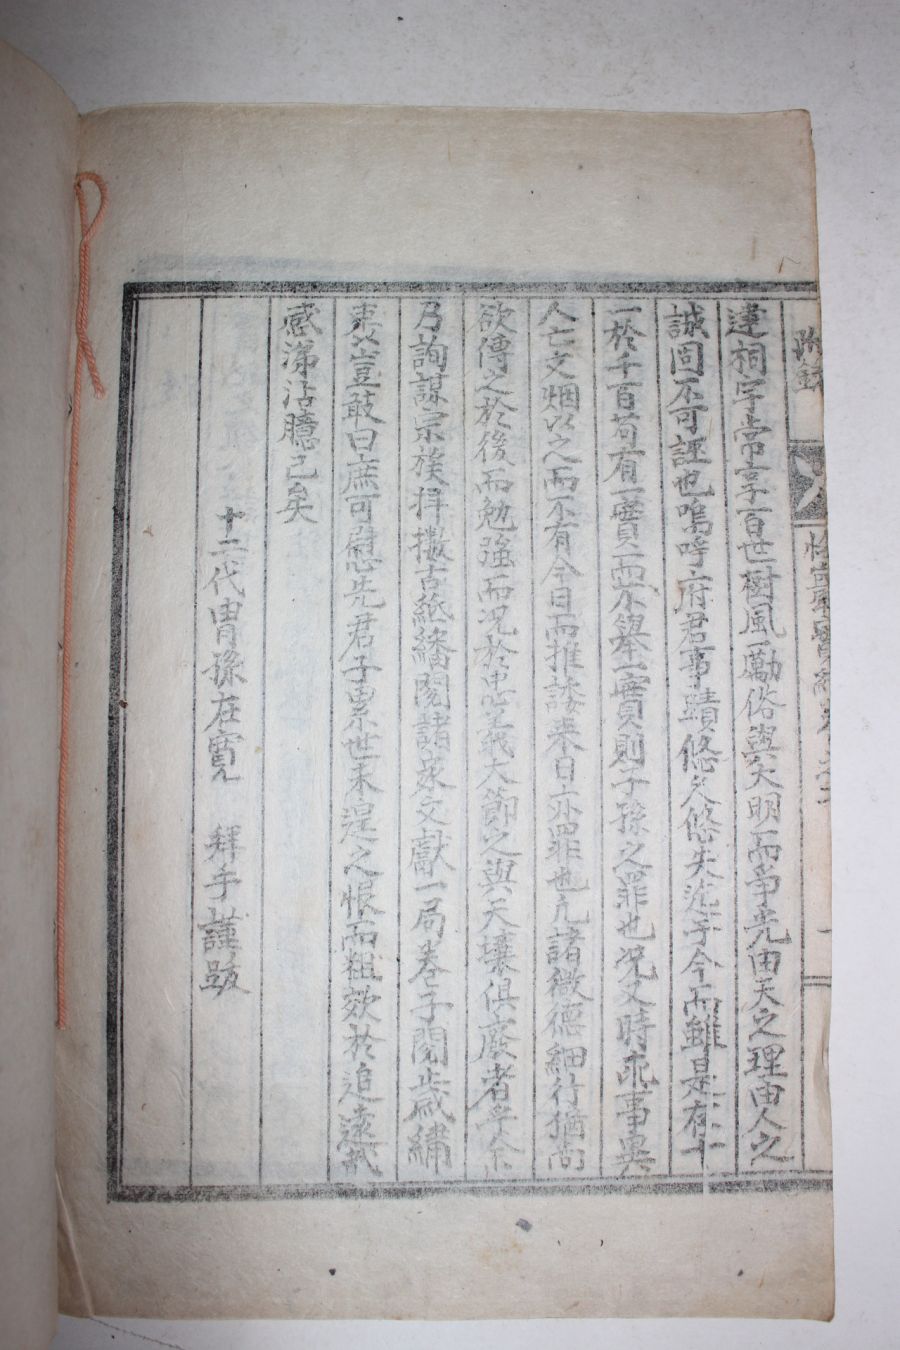 附錄
建祠宇常享百世樹風勵俗與矢明而爭光由天之理由人之
誠固不可誣也嗚呼府君事蹟悠久悠失迄于今而雖是存十
一於千百苟有一實而不擧一實則子孫之罪也况又時既事異
人亡文烟以之而不有今日而推諉來日亦罪也凡諸微德細行猶尚
欲傳之於後而勉强而况於忠義大節之與天壤俱廢者乎余
乃詢謀宗族抨攗古紙繙閱諸家文獻一局卷子閱歲繡
棗豈敢曰庶可慰先君子累世未遑之恨而粗效於追遠哉
感涕沾臆已矣
十二代胄孫在寬 拜手謹跋